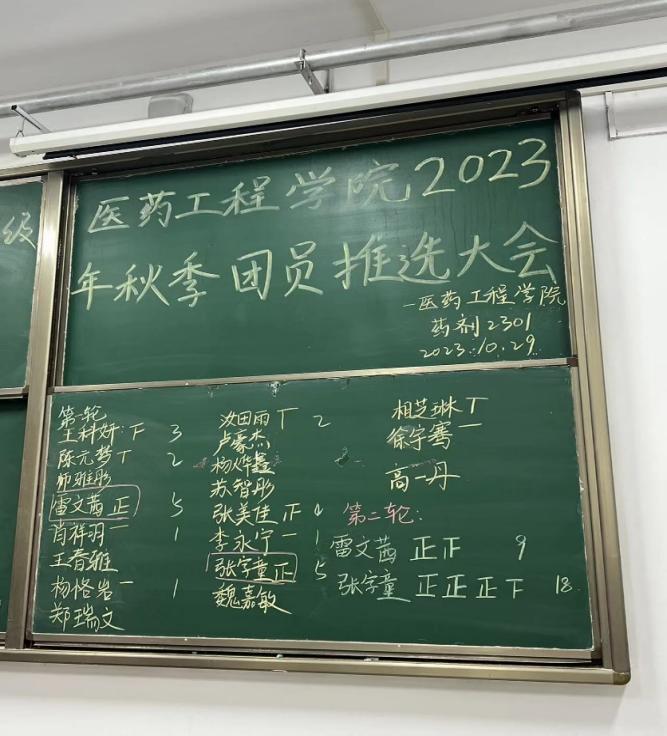 级
医药工程学院2023
年秋季团员推选大会
一医药工程学院
药剂2301
2023.10.29
第一轮
王科妍:下 3
陈元梦丅 2
师雅彤
雷文茜正 5
肖祥羽一 1
王春雅
杨恪岩一 1
郑瑞文
汝田雨丅 2
卢豪杰
杨烨鑫
苏智彤
张美佳 正 4
李永宁一 1
张字童正 5
魏嘉敏
相芝琳丅
徐宇骞一
高一丹
第二轮:
雷文茜 正正 9
张字童 正正正下 18